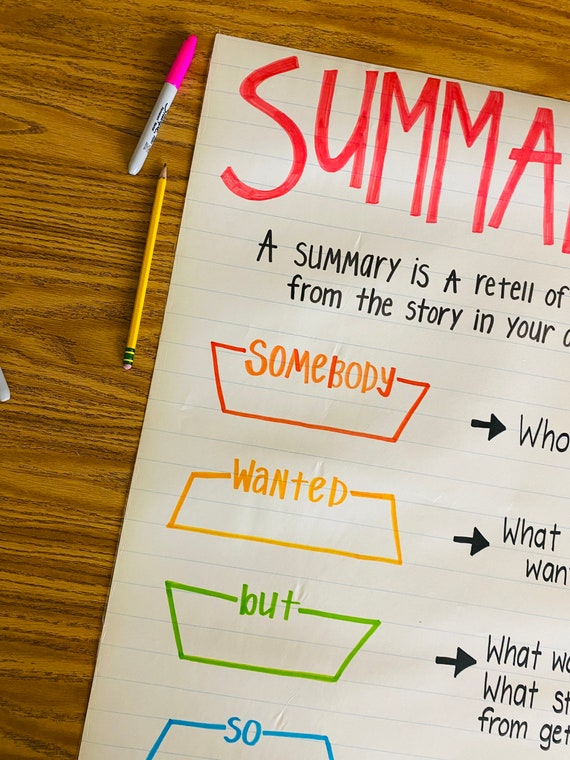 A SUMMARY IS A retell of
from the story in your
SOMEBODY
Who
WANTED
What
want
but
What
What
from get
SO